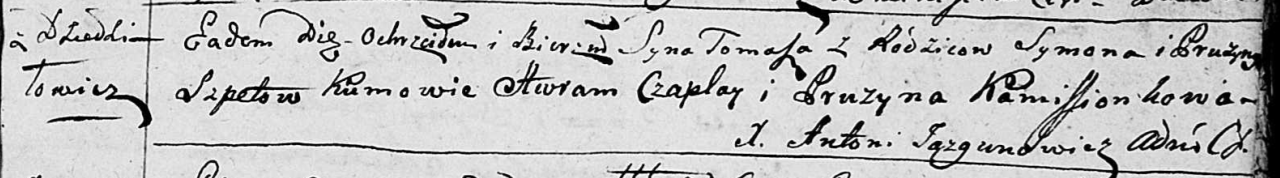 z Dziedzi-
łowicz
Eadem Die Ochrzciłem i Bierzm Syna Tomasza z Rodzicow Symona i Pruzyny
Szpetow Kumowie Awram Czaplay i Pruzyna Kamissionkowa -
X. Antoni Jazgunowicz